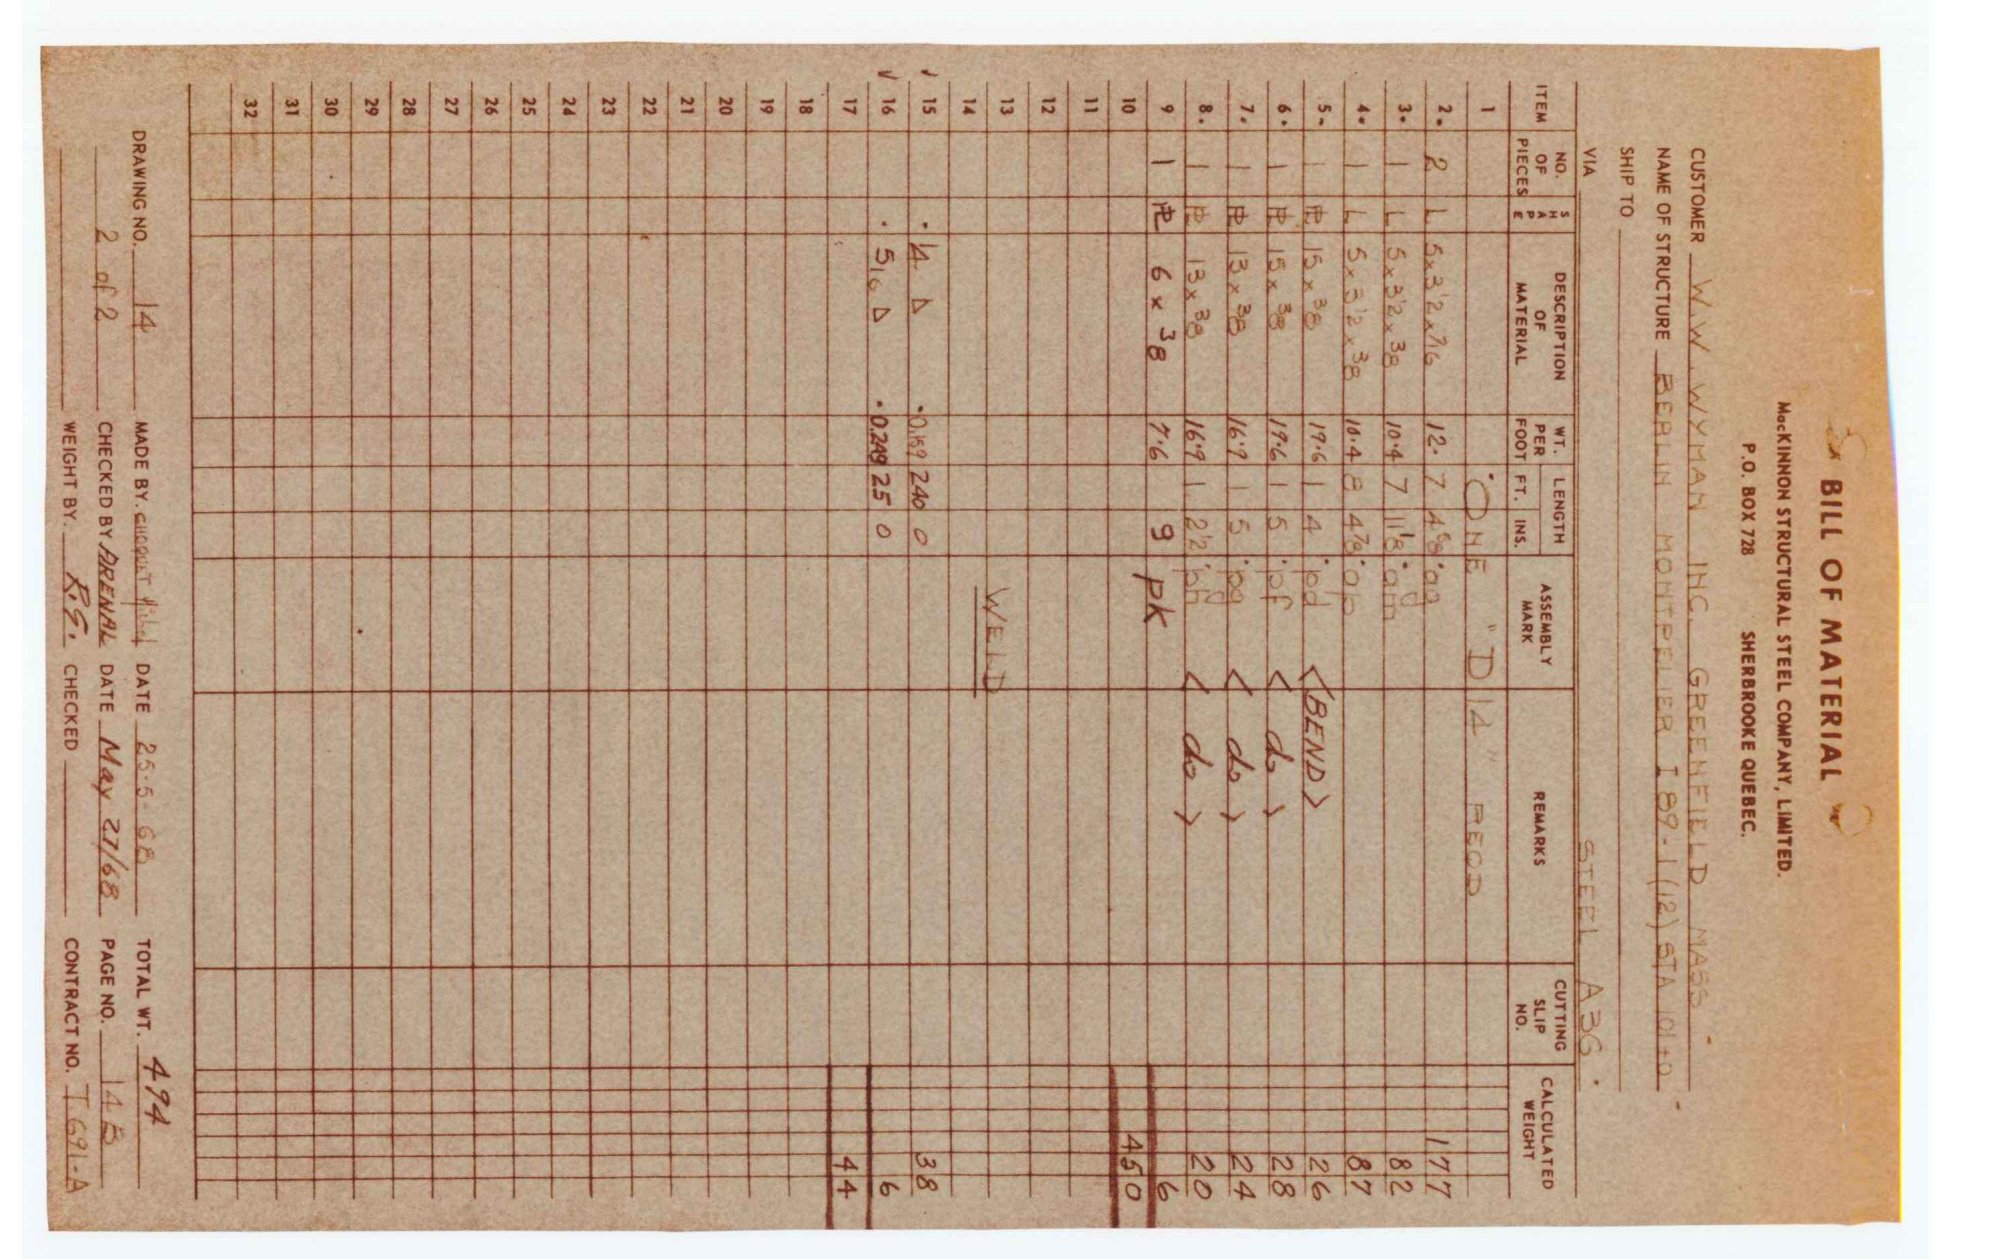 BILL OF MATERIAL
MacKINNON STRUCTURAL STEEL COMPANY, LIMITED.
P.O. BOX 728 SHERBROOKE QUEBEC.
CUSTOMER W.W. WYMAN INC. GREENFIELD MASS
NAME OF STRUCTURE BERLIN MONTPELIER I 89-1 (12) STA 101+0
SHIP TO
VIA STEEL A36.
ITEM NO. OF PIECES SHAPE DESCRIPTION OF MATERIAL WT. PER FOOT LENGTH FT. INS. ASSEMBLY MARK REMARKS CUTTING SLIP NO. CALCULATED WEIGHT
1 ONE "D14" REQD
2. 2 L 5x3½x7/16 12. 7 4⅝ aq 177
3. 1 L 5x3½x⅜ 10.4 7 11⅛ am 82
4. 1 L 5x3½x⅜ 10.4 8 4⅞ ap 87
5. 1 PL 15x⅜ 19.6 1 4 pd <BEND> 26
6. 1 PL 15x⅜ 19.6 1 5 pf < do > 28
7. 1 PL 13x⅜ 16.9 1 5 pg < do > 24
8. 1 PL 13x⅜ 16.9 1 2½ ph < do > 20
9 1 PL 6x⅜ 7.6 9 pk 6
10 450
11
12
13 WELD
14
15 ¼ △ 0.159 240 0 38
16 5/16 △ 0.249 25 0 6
17 44
18
19
20
21
22
23
24
25
26
27
28
29
30
31
32
DRAWING NO. 14 MADE BY. DATE 25-5-68 TOTAL WT. 494
2 of 2 CHECKED BY ARENAL DATE May 27/68 PAGE NO. 14B
WEIGHT BY. R.G. CHECKED CONTRACT NO. T691-A